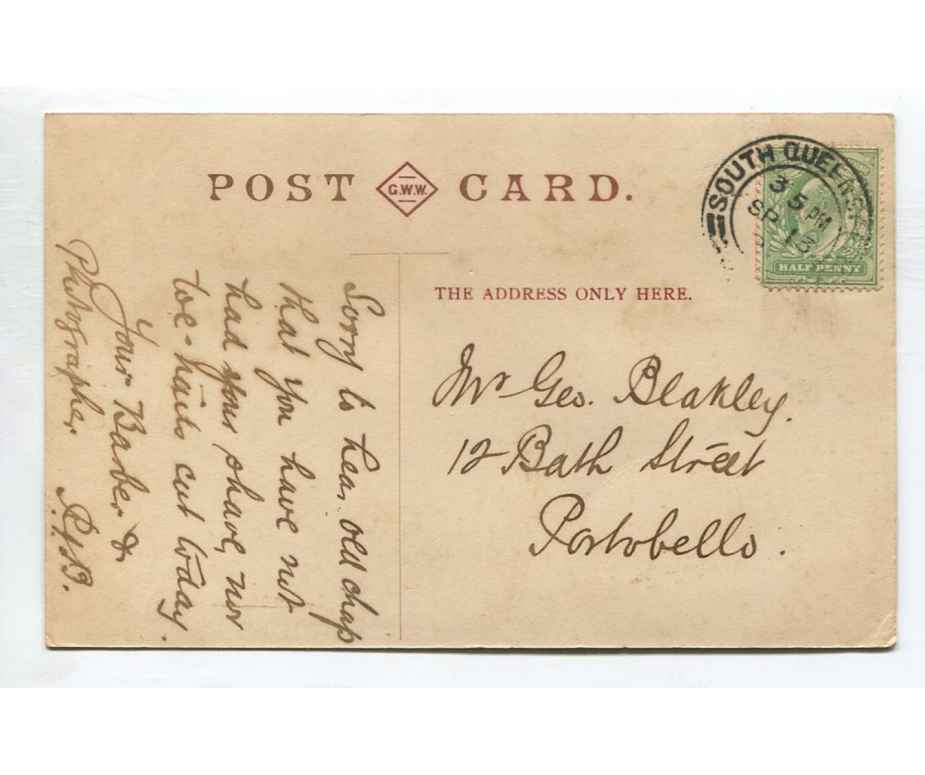 POST G.W.W. CARD.
SOUTH QUEENSF
3 5 PM
SP 13
HALF PENNY
THE ADDRESS ONLY HERE.
Mr Geo. Blakley.
12 Bath Street
Portobello.
Sorry to hear old chap
that you have not
had your shave, nor
toe-nails cut today.
Your Barber &
Photographer